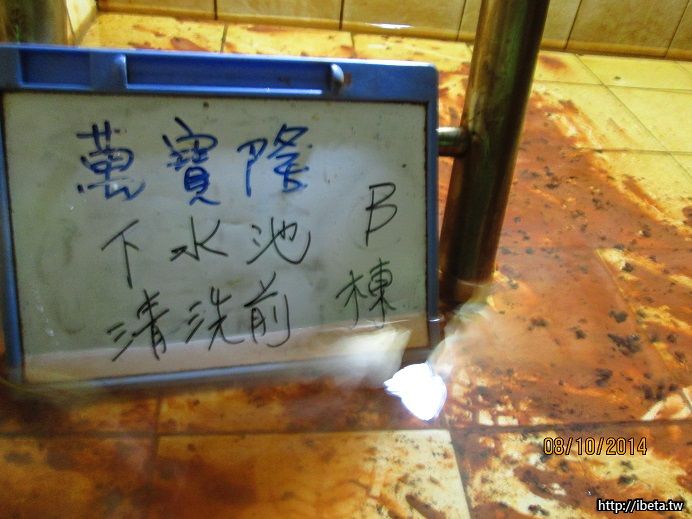 萬寶隆
下水池
清洗前
B
棟
08/10/2014
http://ibeta.tw